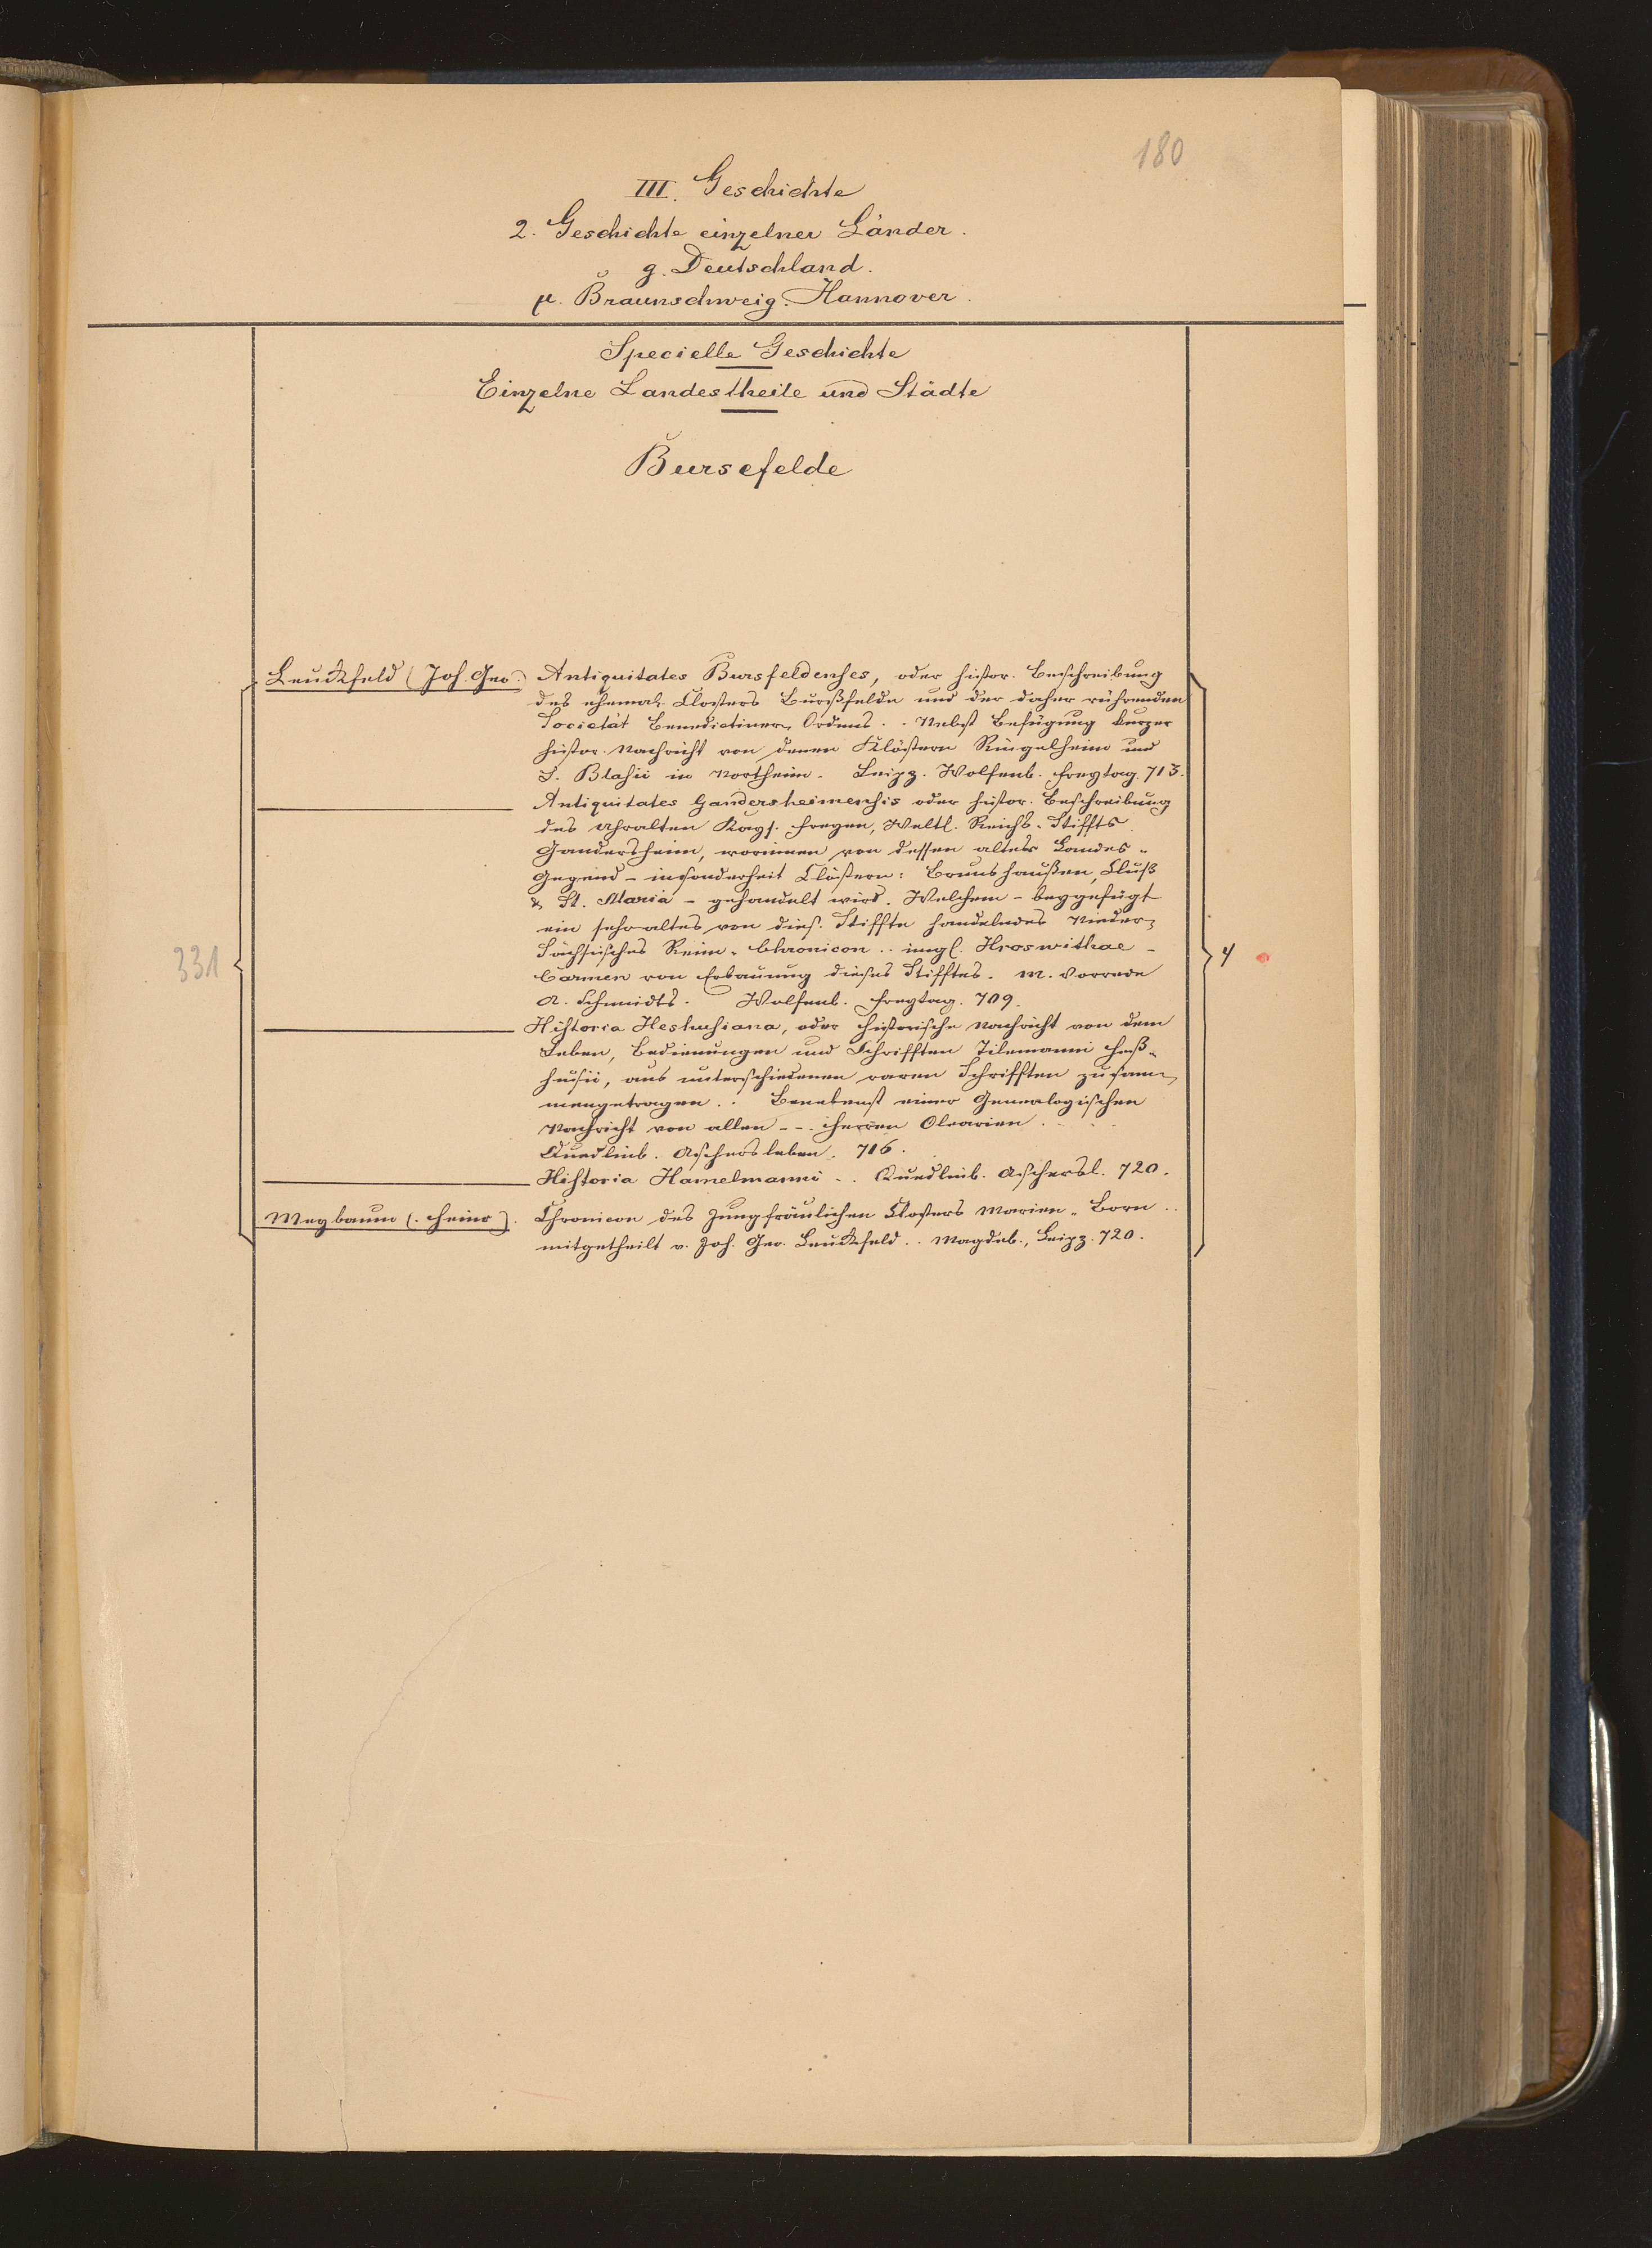 180
III. Geschichte
2. Geschichte einzelner Länder.
g. Deutschland.
µ. Braunschweig. Hannover.
Specielle Geschichte
Einzelne Landestheile und Städte
Bursefelde
Leuckfeld (Joh. Geo.) Antiquitates Bursfeldenses, oder histor. Beschreibung
des ehemal. Closters Burßfelde und der daher rührenden
Societät Benedictiner Ordens . . Nebst Befügung kurzer
histor. Nachricht von denen Klöstern Ringelheim und
S. Blasii in Northeim. Leipz. Wolfenb. Freytag. 713.
Antiquitates Gandersheimensis oder histor. Beschreibung
des Uhralten Kays. Freyen, Weltl. Reichs-Stiffts
Gandersheim, worinnen von dessen alter Landes-
Gegend - insonderheit Clöstern: Brunshaußen, Cluß
& St. Maria - gehandelt wird. Welchem - beygefügt
ein sehr altes von dies. Stiffte handelndes Nieder-
Sächsisches Reim-Chronicon . . imgl. Hroswithae -
Carmen von Erbauung dieses Stifftes. M. Vorrede
A. Schmidts. Wolfenb. Freytag. 709.
Historia Heshusiana, oder historische Nachricht von dem
Leben, Bedienungen und Schrifften Tilemanni Heß-
husii, aus unterschiedenen raren Schrifften zusam-
mengetragen . . Benebenst einer Genealogischen
Nachricht von allen - - . Herren Olearien . . .
Quedlinb. Aschersleben. 716.
Historia Hamelmanni . . Quedlinb. Aschersl. 720.
331
4
Meybaum (. Heinr). Chronicon des Jungfräulichen Closters Marien-Born . .
mitgetheilt v. Joh. Geo. Leuckfeld . . Magdeb., Leipz. 720.